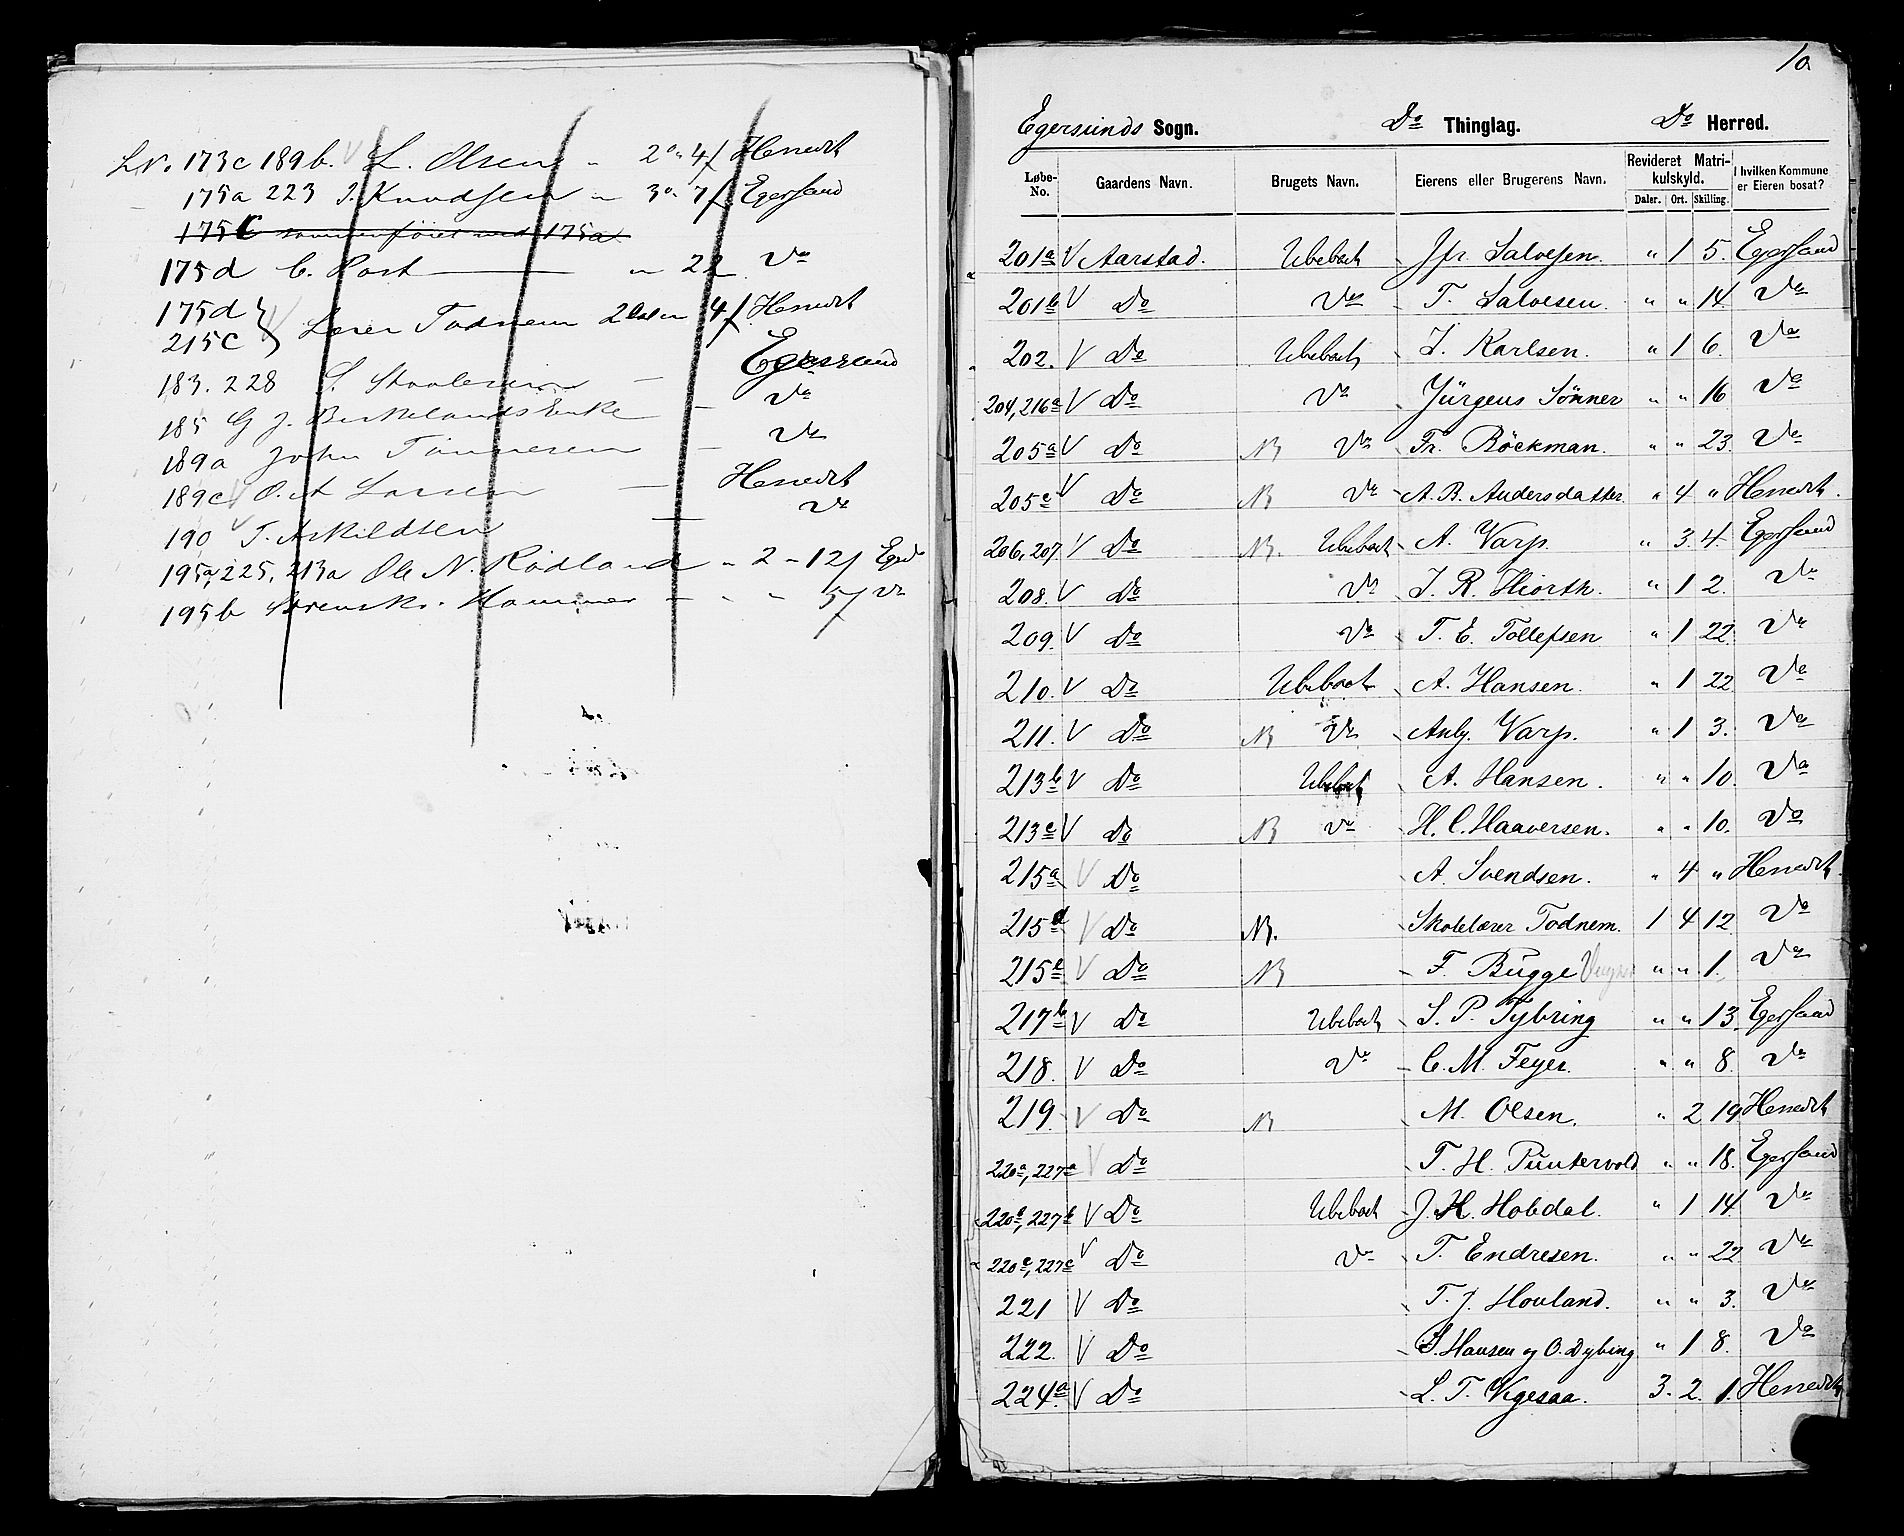 L No 173c 189b. V L. Olsen " 2 " 4/ Herredt
175a 223 J. Knudsen " 3 " 7/ Egersund
175c sammenføiet med 175a
175d C. Host — " 22 Do
175d } Lærer Todnem 2 " 4/ Herredt
215c
183. 228 S. Egersund
185 G J. Birkelands Enke — Do
189a John Tønnesen — Do
189c V O. A Larsen — Herredt
190 V T. Askildsen — Do
195a, 225, 213a Ole N. Rødland " 2 " 12/ Egersd
195b Hammer — " " 5/ Do
10
Egersunds Sogn. Do Thinglag. Do Herred.
Løbe-No. Gaardens Navn. Brugets Navn. Eierens eller Brugerens Navn. Revideret Matrikulskyld. I hvilken Kommune er Eieren bosat?
Daler. Ort. Skilling.
201a V Aarstad. Ubebodt Jfr. Salvesen. " 1 5. Egersund
201b V Do Do T. Salvesen. " " 14. Do
202. V Do Ubebodt J. Karlsen. " 1 6. Do
204, 216a V Do Do Jürgens Sønner " " 16 Do
205a V Do N Do Fr. Böckman. " " 23. Do
205c V Do N Do A. B. Andersdatter " 4 " Herredt.
206, 207. V Do N. Ubebodt A. Varp. " 3. 4. Egersund
208. V Do Do J. R. Hiorth. " 1 2. Do
209. V Do Do T. E. Tollefsen " 1 22. Do
210. V Do Ubebodt A. Hansen. " 1 22 Do
211. V Do N Do Anty. Varp. " 1 3. Do
213b V Do Ubebodt A. Hansen. " " 10. Do
213c V Do N Do H. C. Haaversen. " " 10. Do
215a V Do A. Svendsen. " 4 " Herredt.
215d V Do N. Skolelærer Todnem. 1 4 12. Do
215e V Do N F. Bugge " " 1. Do
217b V Do Ubebodt S. P. Tybring " " 13. Egersund
218. V Do Do C. M. Feyer. " " 8. Do
219. V Do N M. Olsen. " 2 19. Herredt
220a, 227a V Do T. H. Puntervold " " 18. Egersund
220b, 227b V Do Ubebodt J. H. Hobdal. " 1 14. Do
220c, 227c V Do Do T. Endresen. " " 22. Do
221 V Do T. J. Hovland. " " 3. Do
222. V Do S. Hansen og O. Dybing " 1 8. Do
224a. V Do L. T. Vigesaa. 3. 2. 1. Herredt